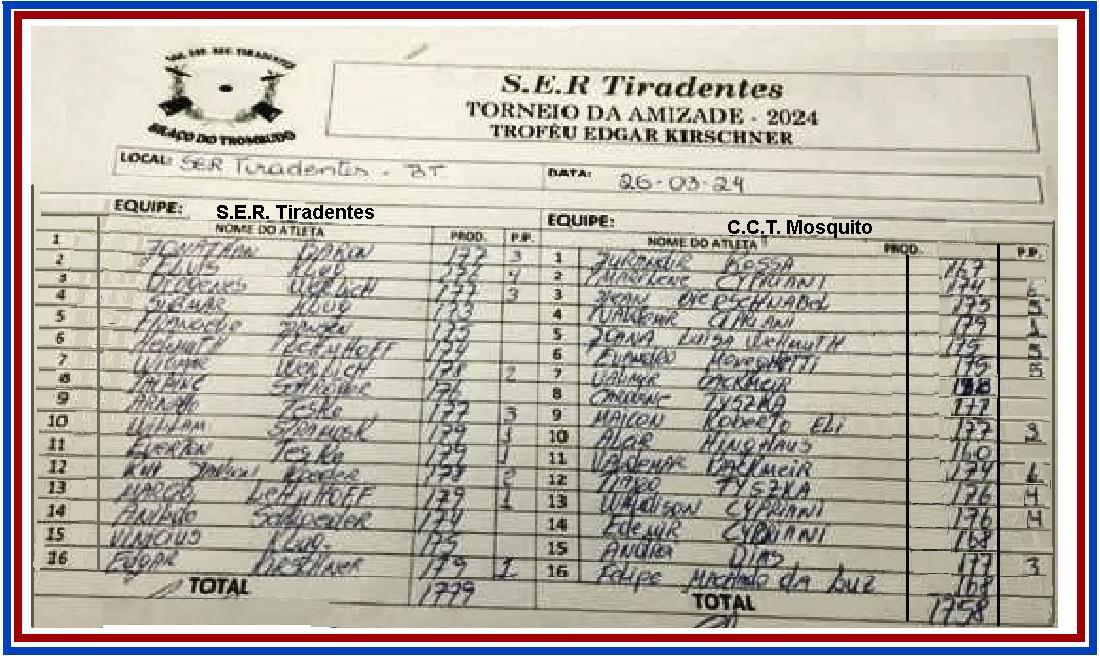 SOC. ESP. REC. TIRADENTES
BRAÇO DO TROMBUDO
S.E.R Tiradentes
TORNEIO DA AMIZADE - 2024
TROFÉU EDGAR KIRSCHNER
LOCAL: SER Tiradentes - BT
DATA: 26-03-24
EQUIPE: S.E.R. Tiradentes
NOME DO ATLETA PROD. P.P.
1 JONATHAN 177 3
2 KLUG 4
3 DIOGENES WERLICH 177 3
4 KLUG 173
5 173
6 HELMUTH LEHNHOFF 174
7 WIGMAR WERLICH 178 2
8 176
9 ARNALDO TESKE 177 3
10 WILLIAM 179 1
11 EVERTON TESKE 179 1
12 178 2
13 MARCO LEHNHOFF 179 1
14 174
15 VINICIUS KLUG 175
16 EDGAR KIRSCHNER 179 1
TOTAL 1779
EQUIPE: C.C.T. Mosquito
NOME DO ATLETA PROD. P.P.
1 JURANDIR ROSSA 167
2 MARILENE CYPRIANI 174 6
3 JEAN BIERSCHNABEL 175 5
4 VALDEMIR CIPRIANI 179 1
5 JOANA LUISA WEHMUTH 175 5
6 EVANDRO 175 5
7 VALMIR DACKMEIR
8 TYSZKA 177
9 MAICON Roberto ELI 177 3
10 ALOIR MINGHAUS 160
11 VALDEMAR DACKMEIR 174 6
12 TYSZKA 176 4
13 CYPRIANI 176 4
14 EDEMIR CYPRIANI 168
15 ANDREA DIAS 177 3
16 Felipe Machado da Luz 168
TOTAL 1758